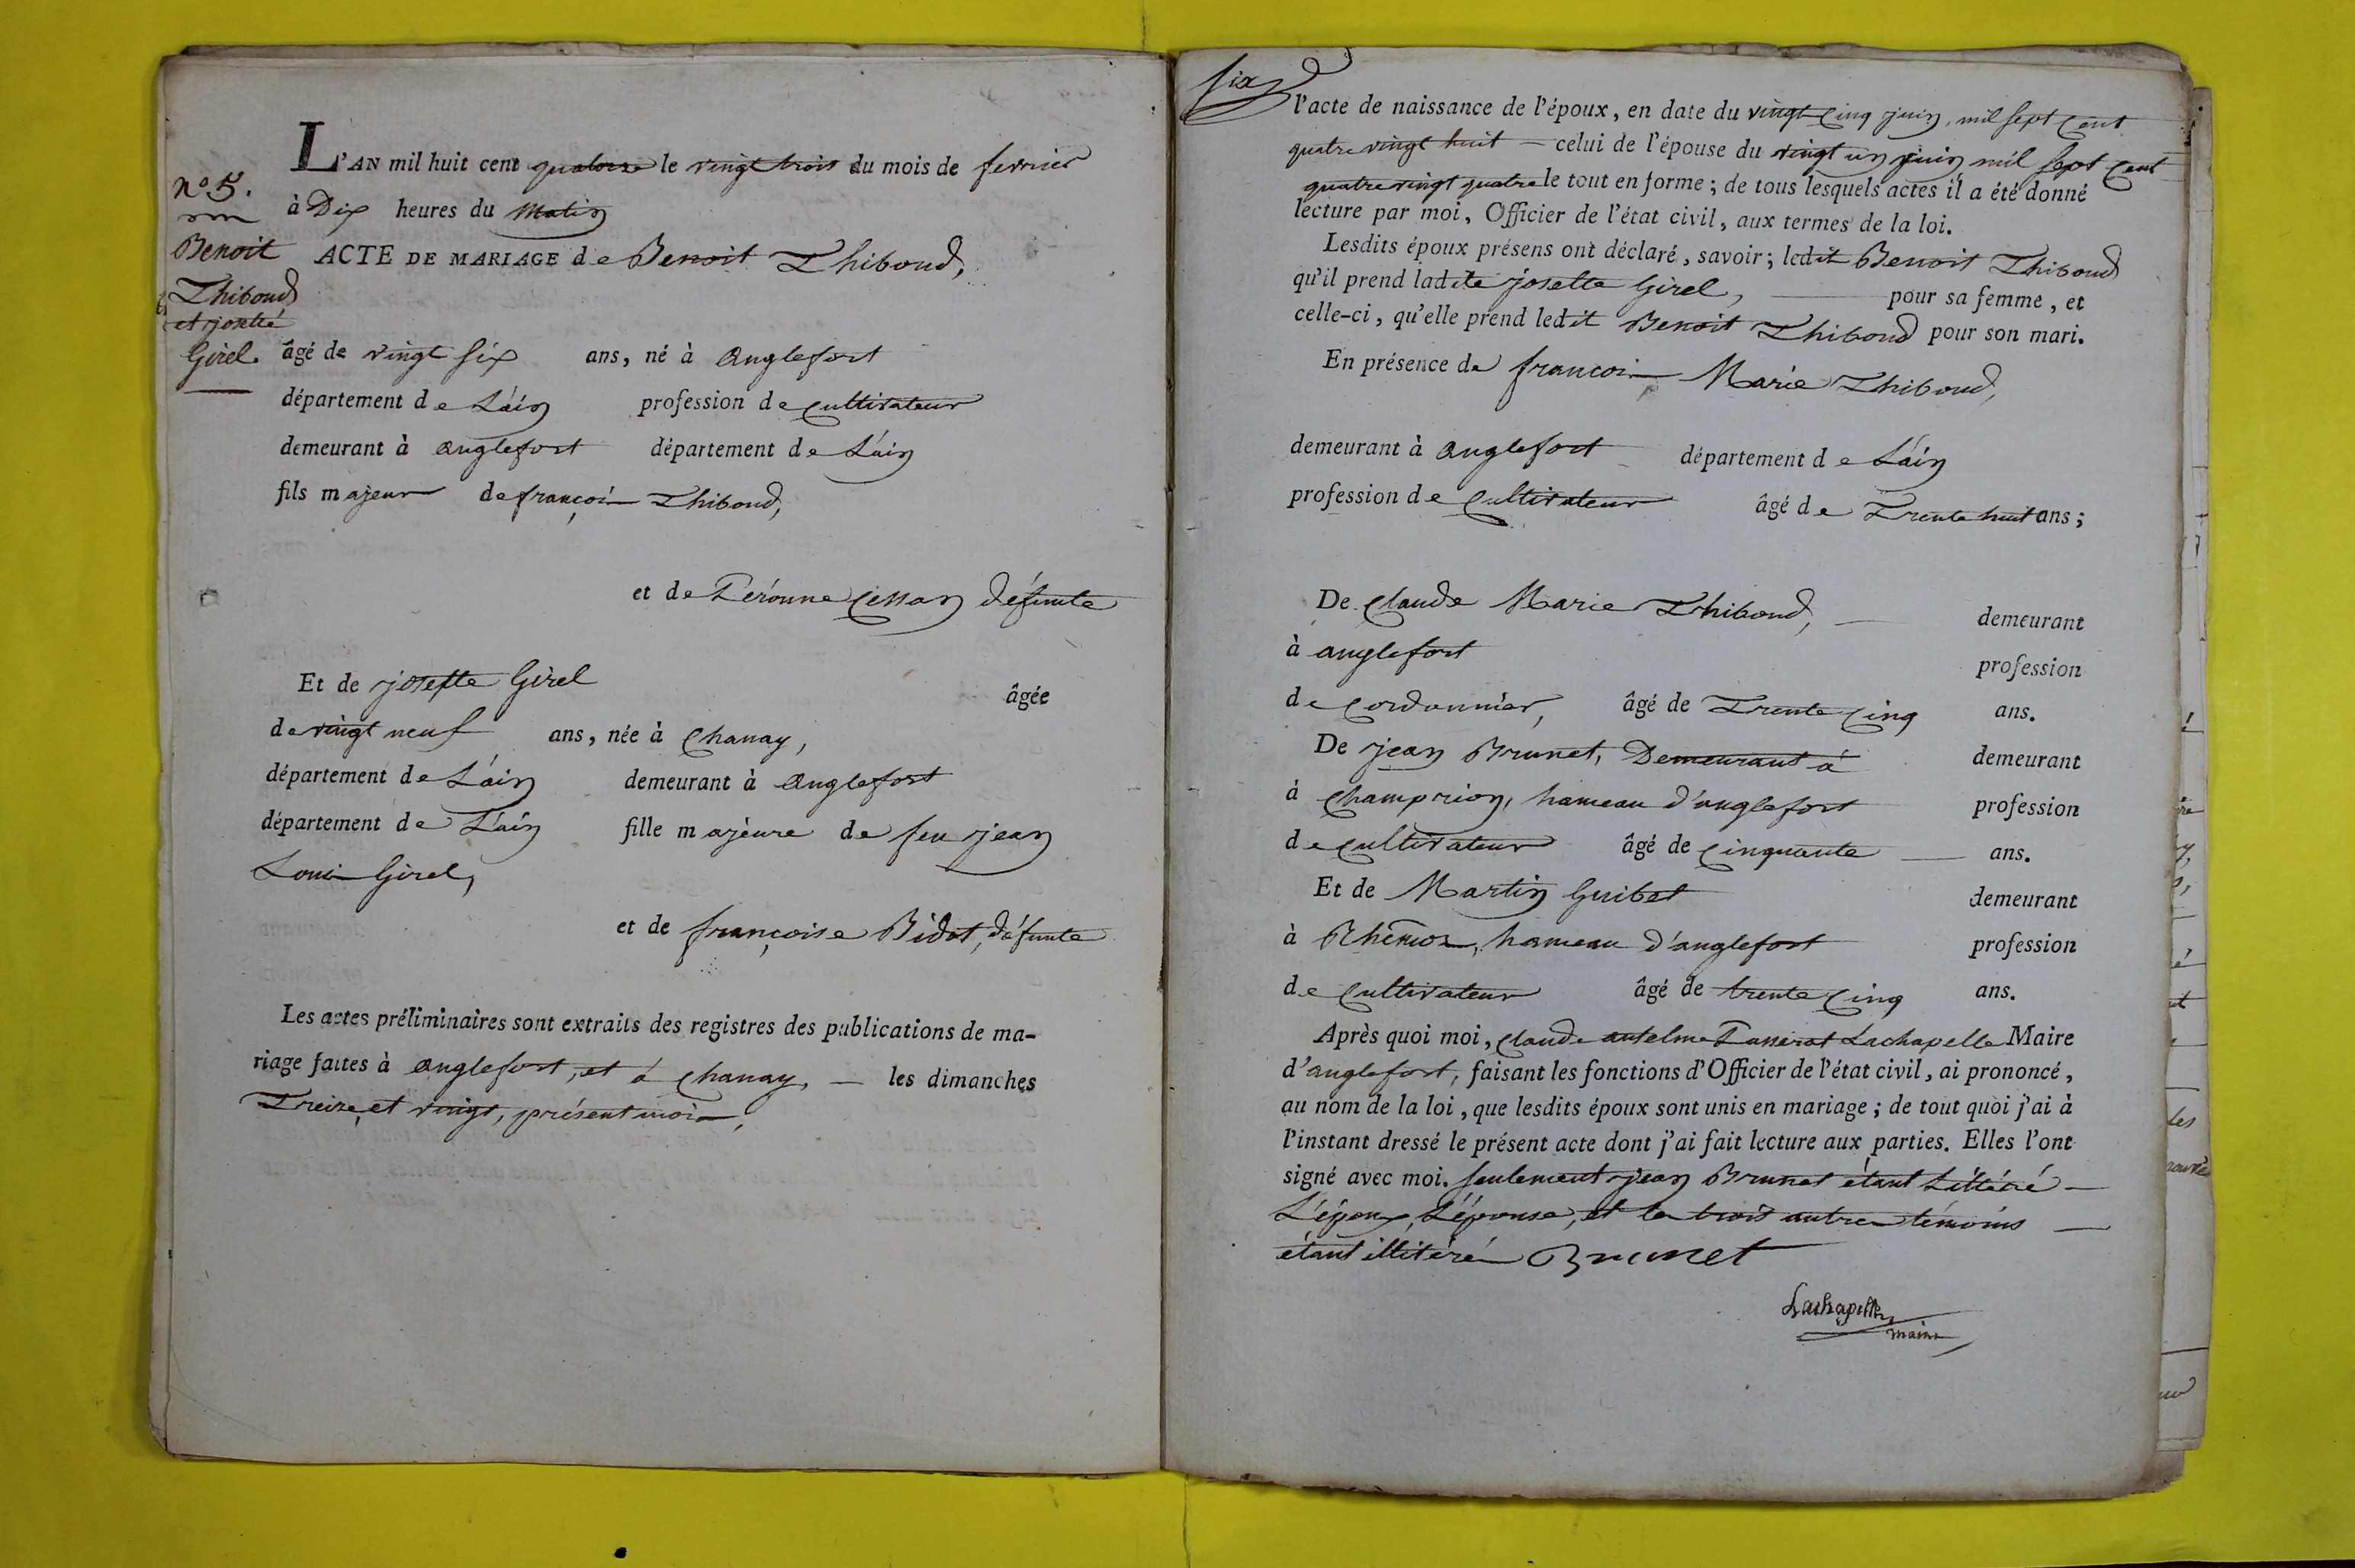 L'AN mil huit cent quatorze le vingt trois du mois de fevrier
à Dix heures du Matin
n° 5.
Benoit
Thiboud
et josette
Girel.
ACTE DE MARIAGE de Benoit Thiboud,
âgé de vingt six ans, né à anglefort
département de L'ain profession de cultivateur
demeurant à anglefort département de L'ain
fils majeur de françois Thiboud,
et de Péronne défunte
Et de josette Girel âgée
de vingt neuf ans, née à Chanay,
département de L'ain demeurant à anglefort
département de L'ain fille majeure de feu jean
Louis Girel,
et de françoise Bidot, défunte
Les actes préliminaires sont extraits des registres des publications de ma-
riage faites à anglefort, et à Chanay, — les dimanches
Treize, et vingt, présent mois,
six
l'acte de naissance de l'époux, en date du vingt cinq juin, mil sept cent
quatre vingt huit — celui de l'épouse du vingt un juin mil sept cent
quatre vingt quatre le tout en forme ; de tous lesquels actes il a été donné
lecture par moi, Officier de l'état civil, aux termes de la loi.
Lesdits époux présens ont déclaré, savoir ; ledit Benoit Thiboud
qu'il prend ladite josette Girel, — pour sa femme, et
celle-ci, qu'elle prend ledit Benoit Thiboud pour son mari.
En présence de francois Marie Thiboud,
demeurant à anglefort département de L'ain
profession de cultivateur âgé de Trente huit ans ;
De Claude Marie Thiboud, — demeurant
à anglefort profession
de cordonnier, âgé de Trente cinq ans.
De jean Brunet, Demeurant à demeurant
à Champrion, hameau d'anglefort profession
de cultivateur âgé de cinquante — ans.
Et de Martin Guibet demeurant
à hameau d'anglefort profession
de cultivateur âgé de trente cinq ans.
Après quoi moi, claude antelme Passerat Lachapelle Maire
d'anglefort, faisant les fonctions d'Officier de l'état civil, ai prononcé,
au nom de la loi, que lesdits époux sont unis en mariage ; de tout quoi j'ai à
l'instant dressé le présent acte dont j'ai fait lecture aux parties. Elles l'ont
signé avec moi. seulement jean Brunet étant Littéré —
L'époux, L'épouse, et les trois autres témoins —
étant illitérés Brunet
Lachapelle
maire